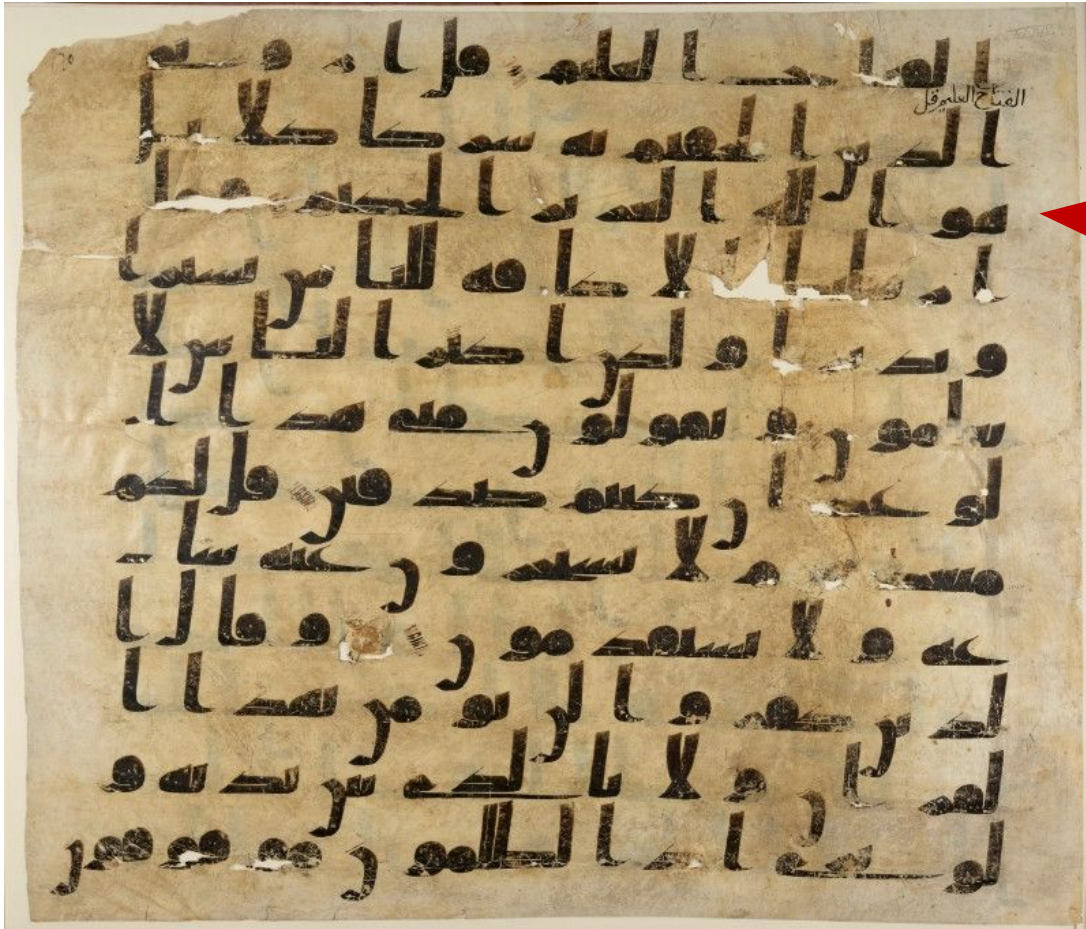 الفتاح العليم قل اروني
الفتاح العليم قل
الذين الحقتم به شركا كلا بل
هو الله العزيز الحكيم وما
ارسلنك الا كافه للناس بشيرا
ونذيرا ولكن اكثر الناس لا
يعلمون ويقولون متى هذا ا
لوعد ان كنتم صدقين قل لكم
ميعاد يوم لا تستخرون عنه سا
عه ولا تستقدمون وقال ا
لذين كفروا لن نومن بهذا ا
لقران ولا بالذي بين يديه و
لو ترى اذ الظلمون موقوفون